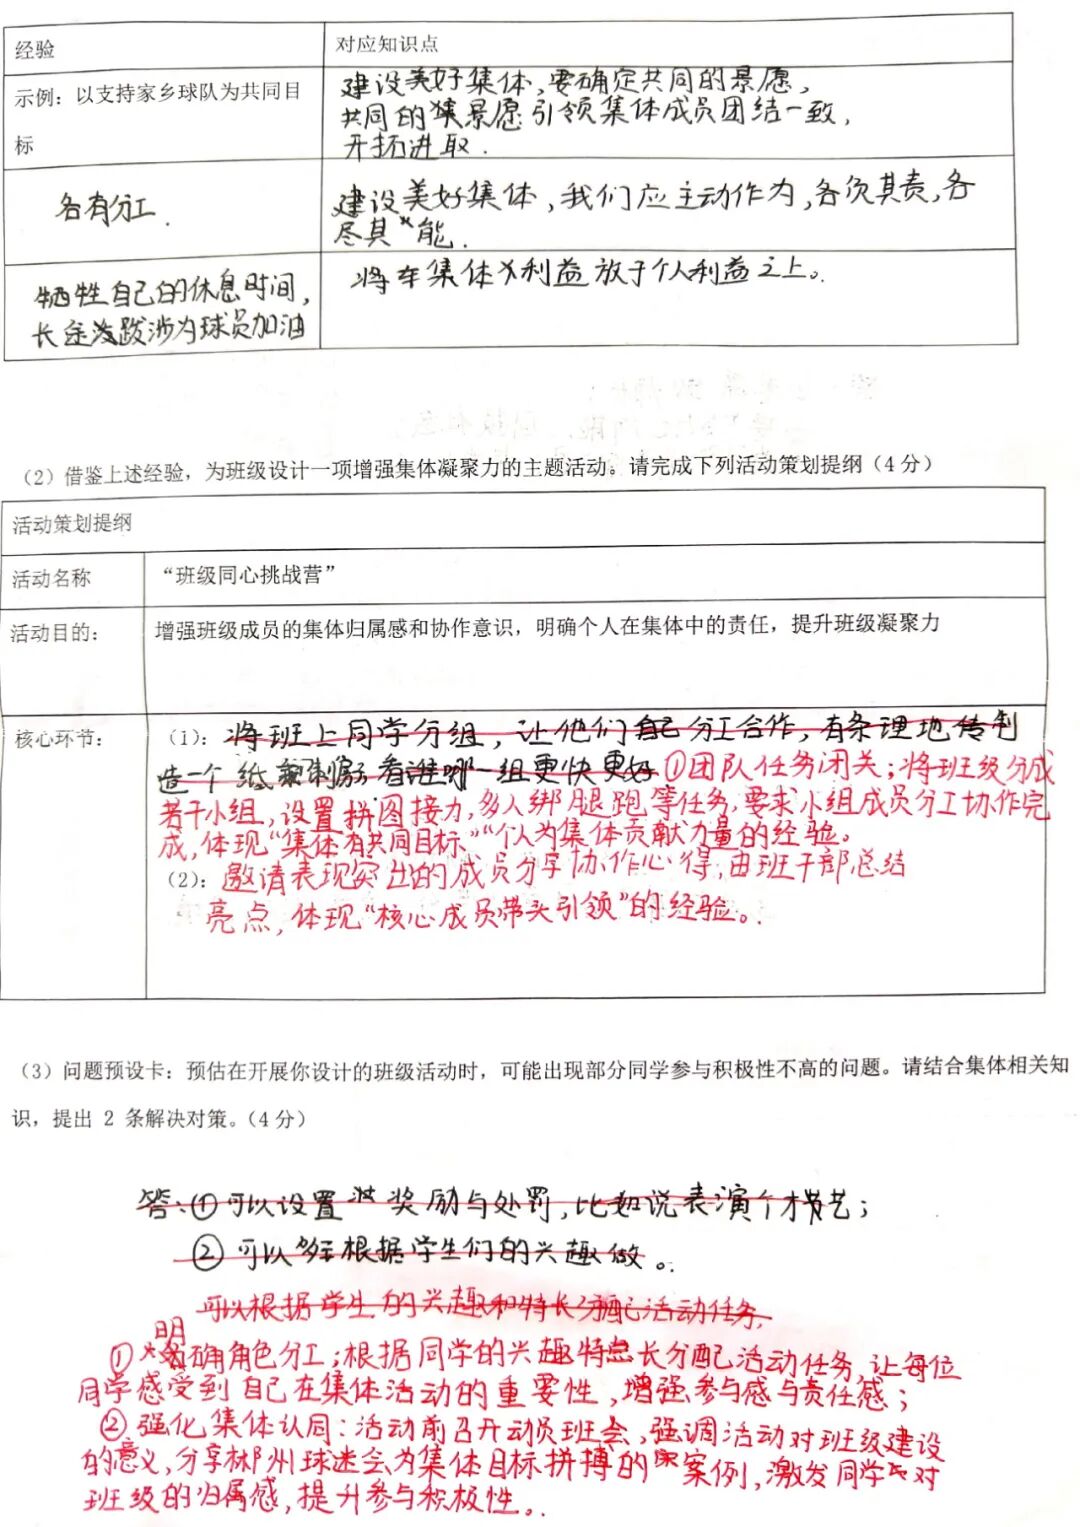 经验
对应知识点
示例：以支持家乡球队为共同目
标
建设美好集体，要确定共同的景愿，
共同的景愿引领集体成员团结一致，
开拓进取．
各有分工．
建设美好集体，我们应主动作为，各负其责，各
尽其能．
牺牲自己的休息时间，
长途跋涉为球员加油
将集体利益放于个人利益之上。
（2）借鉴上述经验，为班级设计一项增强集体凝聚力的主题活动。请完成下列活动策划提纲（4 分）
活动策划提纲
活动名称
“班级同心挑战营”
活动目的：
增强班级成员的集体归属感和协作意识，明确个人在集体中的责任，提升班级凝聚力
核心环节：
（1）：将班上同学分组，让他们自己分工合作，有条理地制
造一个纸 看哪一组更快更好①团队任务闭关；将班级分成
若干小组，设置拼图接力，多人绑腿跑等任务，要求小组成员分工协作完
成，体现“集体有共同目标”“个人为集体贡献力量的经验。
（2）：邀请表现突出的成员分享协作心得，由班干部总结
亮点，体现“核心成员带头引领”的经验。
（3）问题预设卡：预估在开展你设计的班级活动时，可能出现部分同学参与积极性不高的问题。请结合集体相关知
识，提出 2 条解决对策。（4 分）
答：①可以设置奖励与处罚，比如说表演个才艺；
②可以根据学生们的兴趣做。
可以根据学生的兴趣和特长分配活动任务，
①明确角色分工；根据同学的兴趣特长分配活动任务，让每位
同学感受到自己在集体活动的重要性，增强参与感与责任感；
②强化集体认同：活动前召开动员班会，强调活动对班级建设
的意义，分享郴州球迷会为集体目标拼搏的案例，激发同学对
班级的归属感，提升参与积极性。